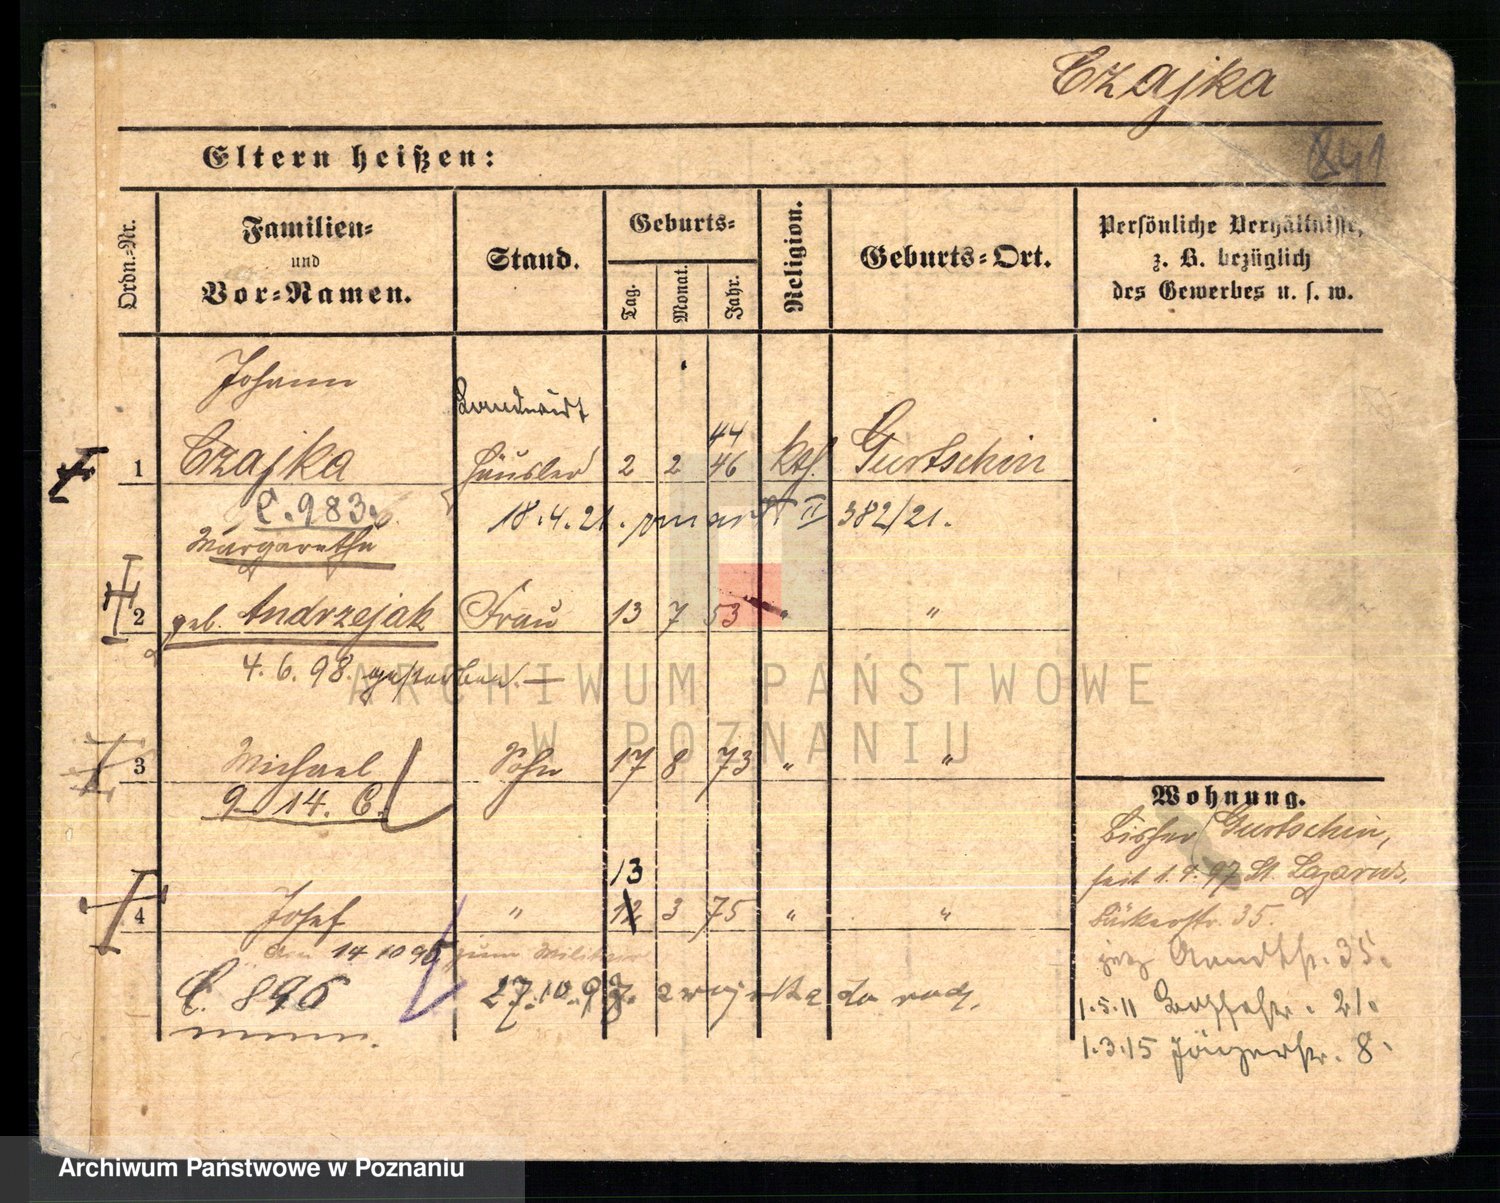 Czajka
841
Eltern heißen:
Ordn.-Nr.
Familien-
und
Vor-Namen.
Stand.
Geburts-
Tag.
Monat.
Jahr.
Religion.
Geburts-Ort.
Persönliche Verhältnisse,
z. B. bezüglich
des Gewerbes u. s. w.
Johann
Landwirt
44
1 Czajka Häusler 2 2 46 kth. Gurtschin
C. 983.
18.4.21. II 382/21.
Margarethe
2 geb. Andrzejak Frau 13 7 53 " "
4. 6. 98. gestorben. —
3 Michael Sohn 17 8 73 " "
9 14. C.
13
4 Josef " 12 3 75 " "
Am 14 10 95 zum Militair
C. 896 27.10.97.
Wohnung.
Bisher Gurtschin,
seit 1.9.97 St. Lazarus,
Bäckerstr. 35.
jetz Arndtstr. 35.
1.5.11 21.
1.3.15 Jägerstr. 8.
ARCHIWUM PAŃSTWOWE
W POZNANIU
Archiwum Państwowe w Poznaniu